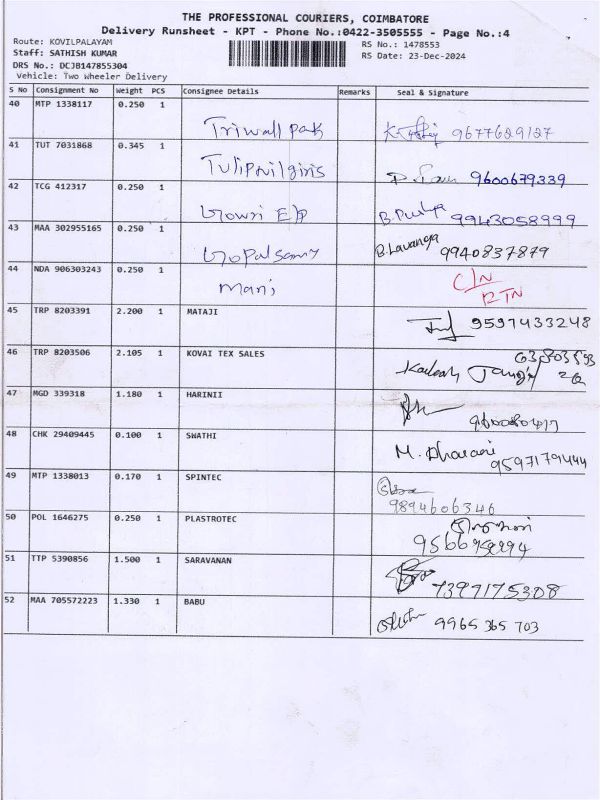 THE PROFESSIONAL COURIERS, COIMBATORE
Delivery Runsheet - KPT - Phone No.:0422-3505555 - Page No.:4
Route: KOVILPALAYAM RS No.: 1478553
Staff: SATHISH KUMAR RS Date: 23-Dec-2024
DRS No.: DCJB147855304
Vehicle: Two Wheeler Delivery
S No Consignment No Weight PCS Consignee Details Remarks Seal & Signature
40 MTP 1338117 0.250 1
Triwall pak 9677629127
41 TUT 7031868 0.345 1
Tulipnilgiris 9600679339
42 TCG 412317 0.250 1
Gowri EB B. Pushpa 9943058999
43 MAA 302955165 0.250 1
Gopalsamy B. Lavanya 9940837879
44 NDA 906303243 0.250 1
Mani C/N
RTN
45 TRP 8203391 2.200 1 MATAJI
9597433248
46 TRP 8203506 2.105 1 KOVAI TEX SALES
Kailash
47 MGD 339318 1.180 1 HARINII
48 CHK 29409445 0.100 1 SWATHI
M. Dharani 9597179444
49 MTP 1338013 0.170 1 SPINTEC
9894606346
50 POL 1646275 0.250 1 PLASTROTEC
51 TTP 5390856 1.500 1 SARAVANAN
7397175308
52 MAA 705572223 1.330 1 BABU
9965 365 703